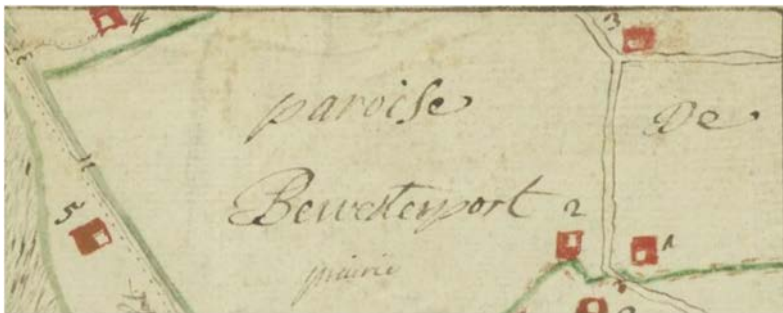 4
3
paroise De
5
Bewesterport 2
1
prairie